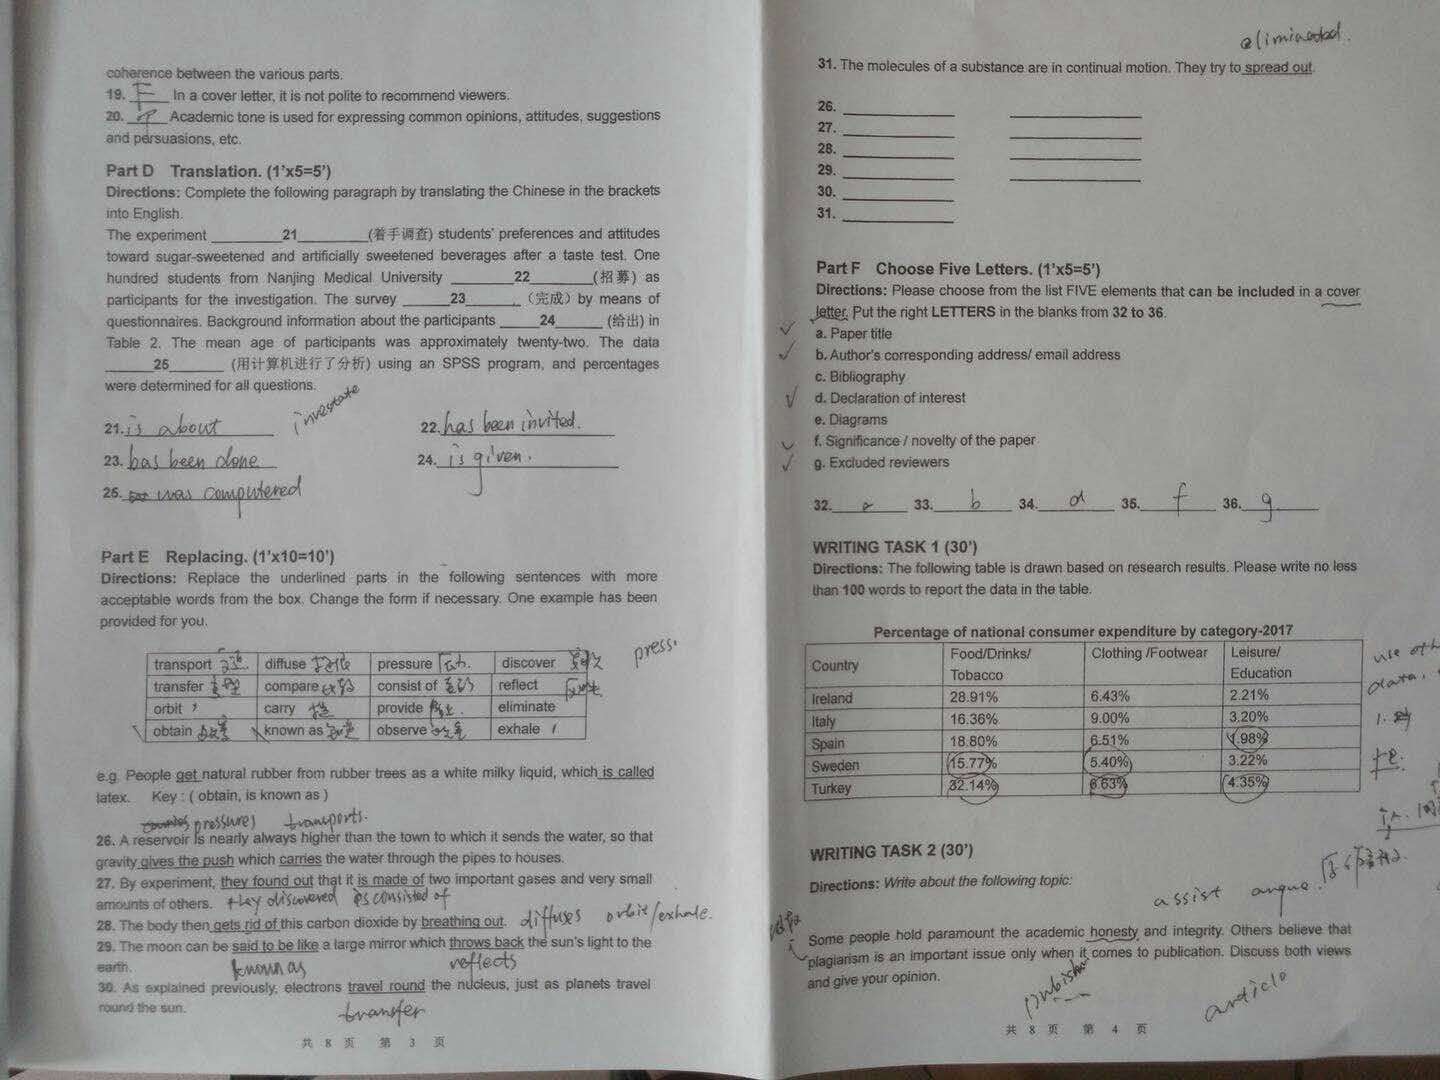 coherence between the various parts.
19. F In a cover letter, it is not polite to recommend viewers.
20. Academic tone is used for expressing common opinions, attitudes, suggestions
and persuasions, etc.
Part D Translation. (1'x5=5')
Directions: Complete the following paragraph by translating the Chinese in the brackets
into English.
The experiment ________21________(着手调查) students' preferences and attitudes
toward sugar-sweetened and artificially sweetened beverages after a taste test. One
hundred students from Nanjing Medical University _______22_______(招募) as
participants for the investigation. The survey _____23_____. (完成) by means of
questionnaires. Background information about the participants _____24_____ (给出) in
Table 2. The mean age of participants was approximately twenty-two. The data
______25______ (用计算机进行了分析) using an SPSS program, and percentages
were determined for all questions.
investate
21. is about 22. has been invited.
23. has been done 24. is given.
25. was computered
Part E Replacing. (1'x10=10')
Directions: Replace the underlined parts in the following sentences with more
acceptable words from the box. Change the form if necessary. One example has been
provided for you.
press.
transport diffuse pressure discover
transfer compare consist of reflect
orbit carry provide eliminate
obtain known as observe exhale
e.g. People get natural rubber from rubber trees as a white milky liquid, which is called
latex. Key : ( obtain, is known as )
pressures transports.
26. A reservoir is nearly always higher than the town to which it sends the water, so that
gravity gives the push which carries the water through the pipes to houses.
27. By experiment, they found out that it is made of two important gases and very small
amounts of others. they discovered is consisted of
28. The body then gets rid of this carbon dioxide by breathing out. diffuses orbit/exhale.
29. The moon can be said to be like a large mirror which throws back the sun's light to the
earth. known as reflects
30. As explained previously, electrons travel round the nucleus, just as planets travel
round the sun. transfer
共 8 页 第 3 页
eliminated.
31. The molecules of a substance are in continual motion. They try to spread out.
26. ____________ ____________
27. ____________ ____________
28. ____________ ____________
29. ____________ ____________
30. ____________
31. ____________
Part F Choose Five Letters. (1'x5=5')
Directions: Please choose from the list FIVE elements that can be included in a cover
letter. Put the right LETTERS in the blanks from 32 to 36.
a. Paper title
b. Author's corresponding address/ email address
c. Bibliography
d. Declaration of interest
e. Diagrams
f. Significance / novelty of the paper
g. Excluded reviewers
32. a 33. b 34. d 35. f 36. g
WRITING TASK 1 (30')
Directions: The following table is drawn based on research results. Please write no less
than 100 words to report the data in the table.
Percentage of national consumer expenditure by category-2017
Country Food/Drinks/ Tobacco Clothing /Footwear Leisure/ Education
Ireland 28.91% 6.43% 2.21%
Italy 16.36% 9.00% 3.20%
Spain 18.80% 6.51% 1.98%
Sweden 15.77% 5.40% 3.22%
Turkey 32.14% 6.63% 4.35%
use oth
data.
WRITING TASK 2 (30')
Directions: Write about the following topic:
assist argue.
Some people hold paramount the academic honesty and integrity. Others believe that
plagiarism is an important issue only when it comes to publication. Discuss both views
and give your opinion.
article
共 8 页 第 4 页